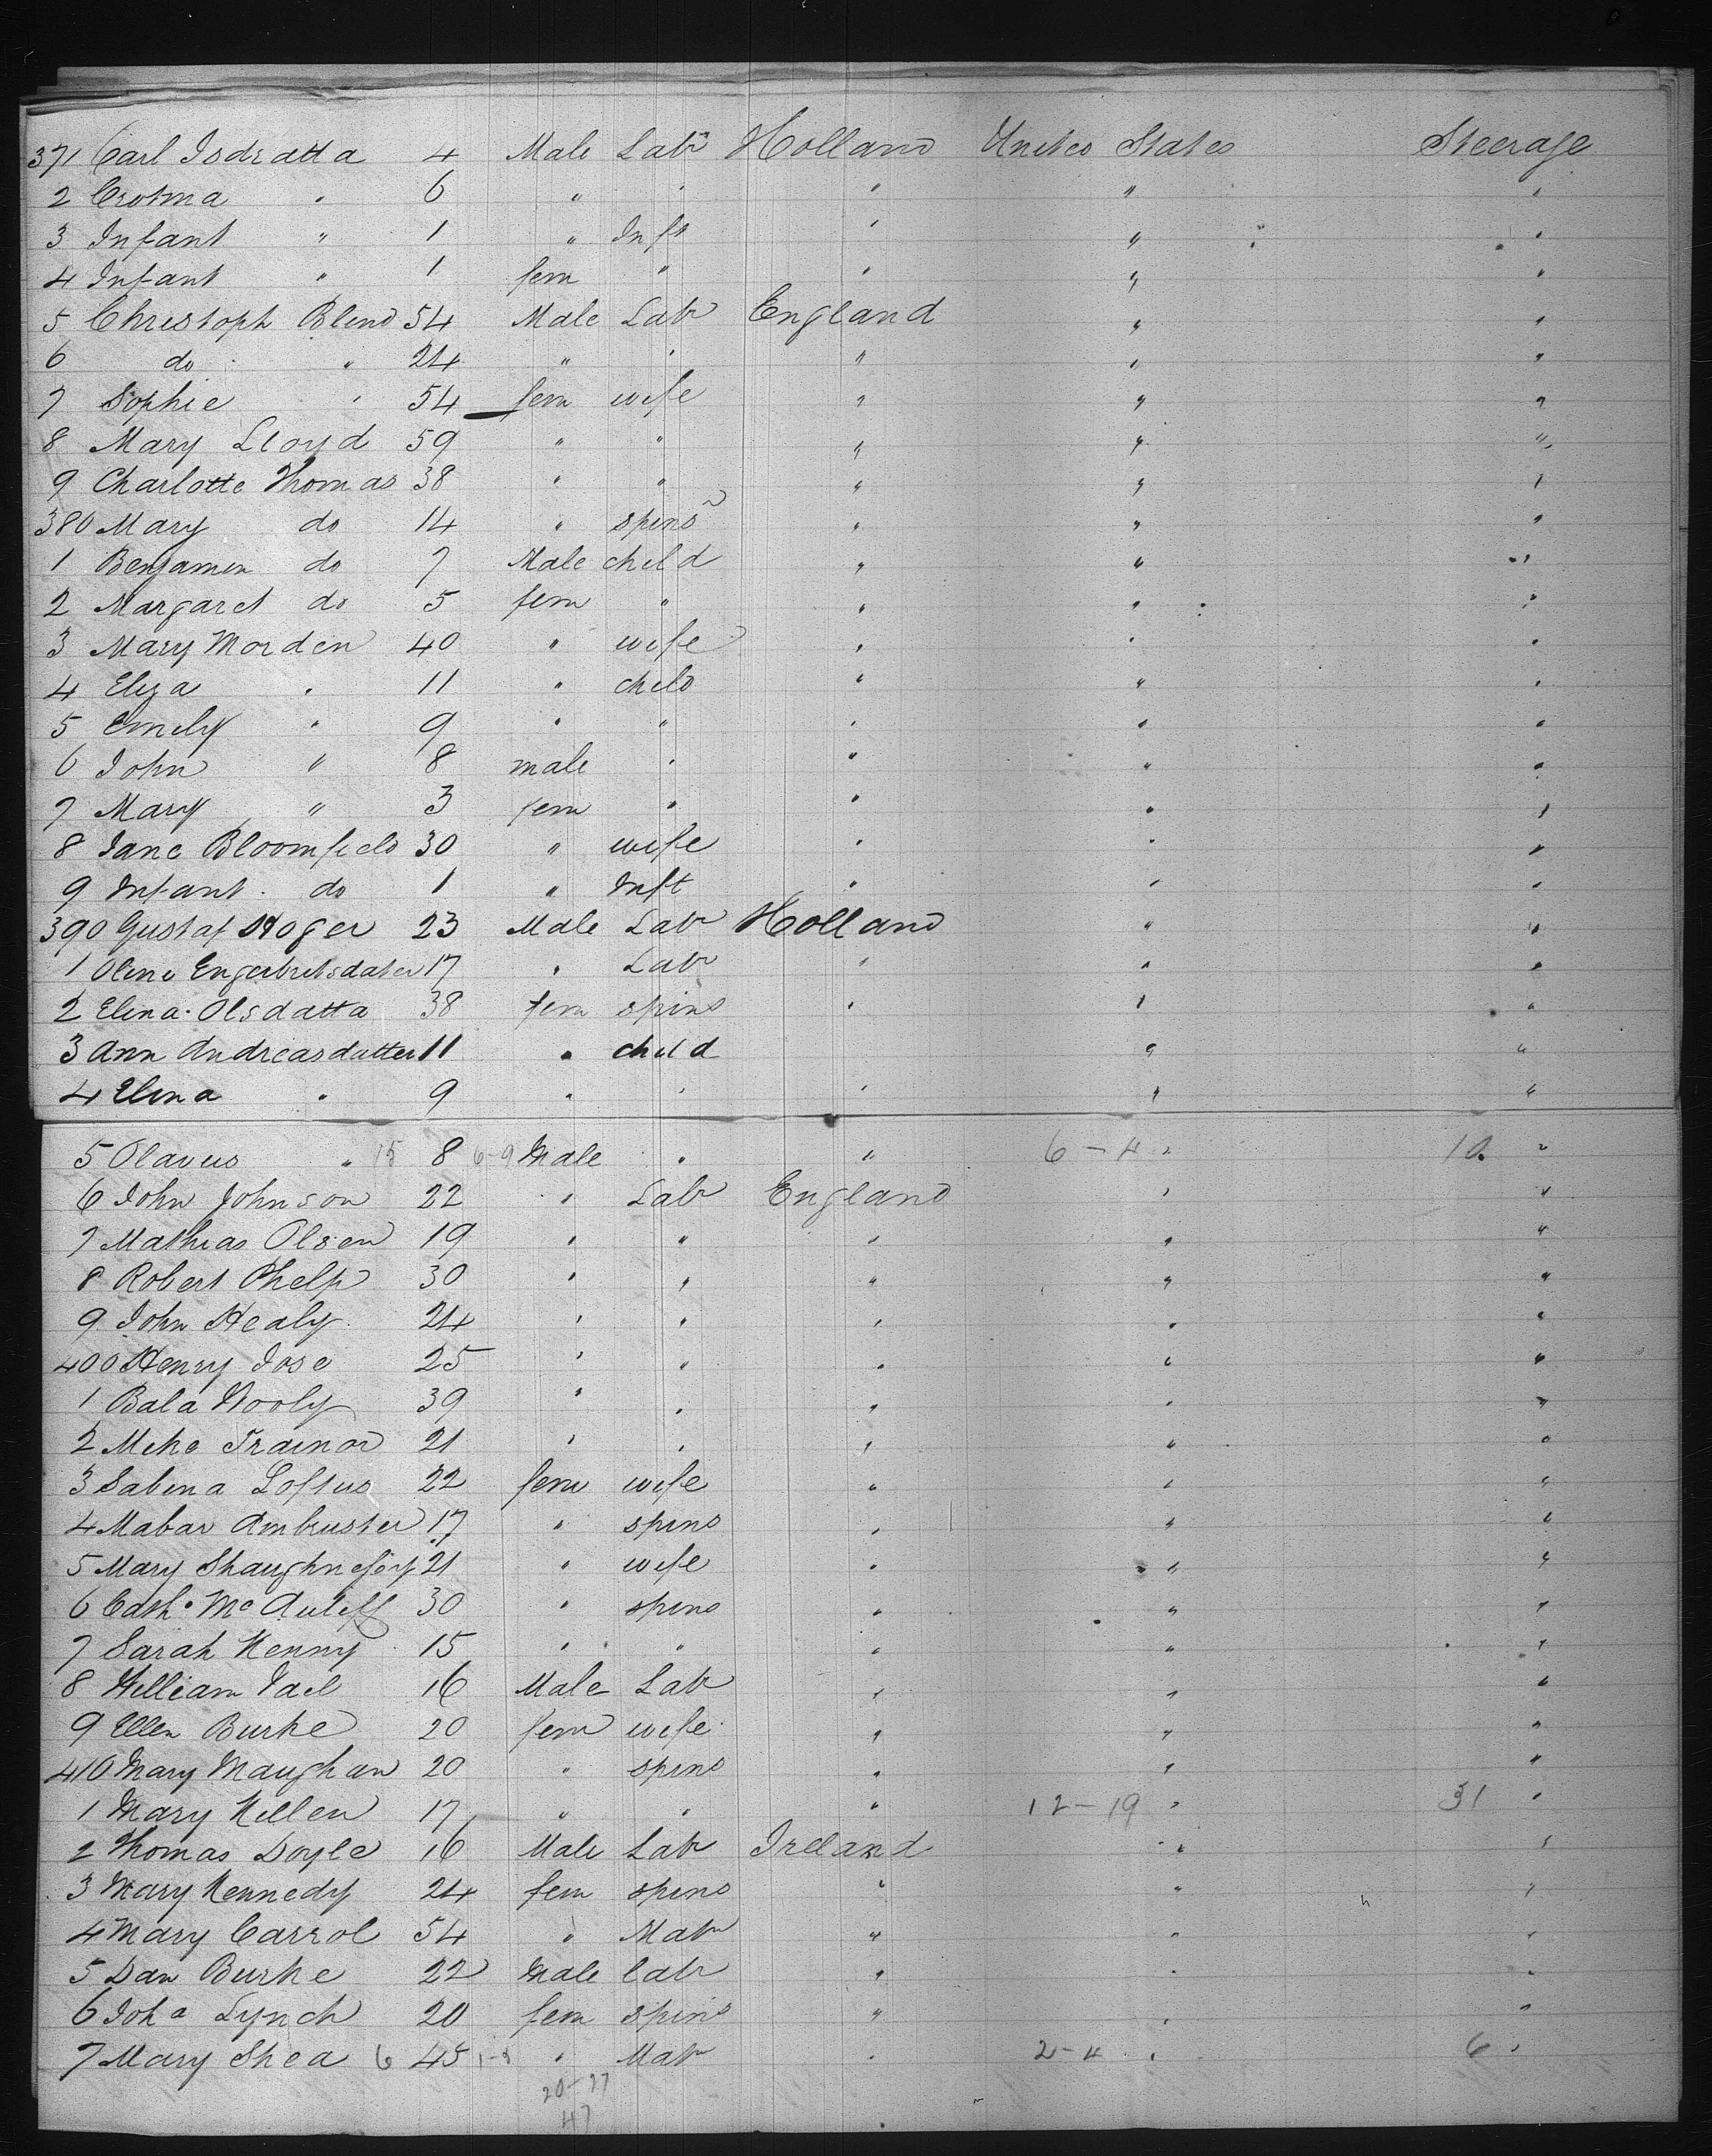 371 Carl Isdratta 4 Male Labr Holland United States Steerage
2 Crotma " 6 " " " " "
3 Infant " 1 " Inft " " "
4 Infant " 1 fem " " " "
5 Christoph Blend 54 Male Labr England " "
6 do " 24 " " " " "
7 Sophie " 54 fem wife " " "
8 Mary Lloyd 59 " " " " "
9 Charlotte Thomas 38 " " " " "
380 Mary do 14 " spins " " "
1 Benjamin do 7 Male child " " "
2 Margaret do 5 fem " " " "
3 Mary Morden 40 " wife " " "
4 Eliza " 11 " child " " "
5 Emily " 9 " " " " "
6 John " 8 male " " " "
7 Mary " 3 fem " " " "
8 Jane Bloomfield 30 " wife " " "
9 Infant do 1 " Inft " " "
390 Gustaf Hoger 23 Male Labr Holland " "
1 Oline Engerbretsdater 17 " Labr " " "
2 Elina Olsdatta 38 fem spins " " "
3 Ann Andreasdatter 11 " child " " "
4 Elina " 9 " " " " "
5 Olavus " 15 8 6-9 Male " " 6-4 " 10 "
6 John Johnson 22 " Labr England " "
7 Mathias Olsen 19 " " " " "
8 Robert Phelp 30 " " " " "
9 John Healy 24 " " " " "
400 Henry Jose 25 " " " " "
1 Bala Wooly 39 " " " " "
2 Mike Trainor 21 " " " " "
3 Sabina Loftus 22 fem wife " " "
4 Mabar Ambruster 17 " spins " " "
5 Mary Shaughnessy 21 " wife " " "
6 Cath. Mc Auliff 30 " spins " " "
7 Sarah Kenny 15 " " " " "
8 William Vail 16 Male Labr " " "
9 Ellen Burke 20 fem wife " " "
410 Mary Maughan 20 " spins " " "
1 Mary Killen 17 " " " 12-19 " 31 "
2 Thomas Doyle 16 Male Labr Ireland " "
3 Mary Kennedy 24 fem spins " " "
4 Mary Carrol 54 " Matr " " "
5 Dan Burke 22 Male labr " " "
6 Joha Lynch 20 fem spins " " "
7 Mary Shea 6 45 1-8 " Matr " 2-4 " 6 "
20-27
47